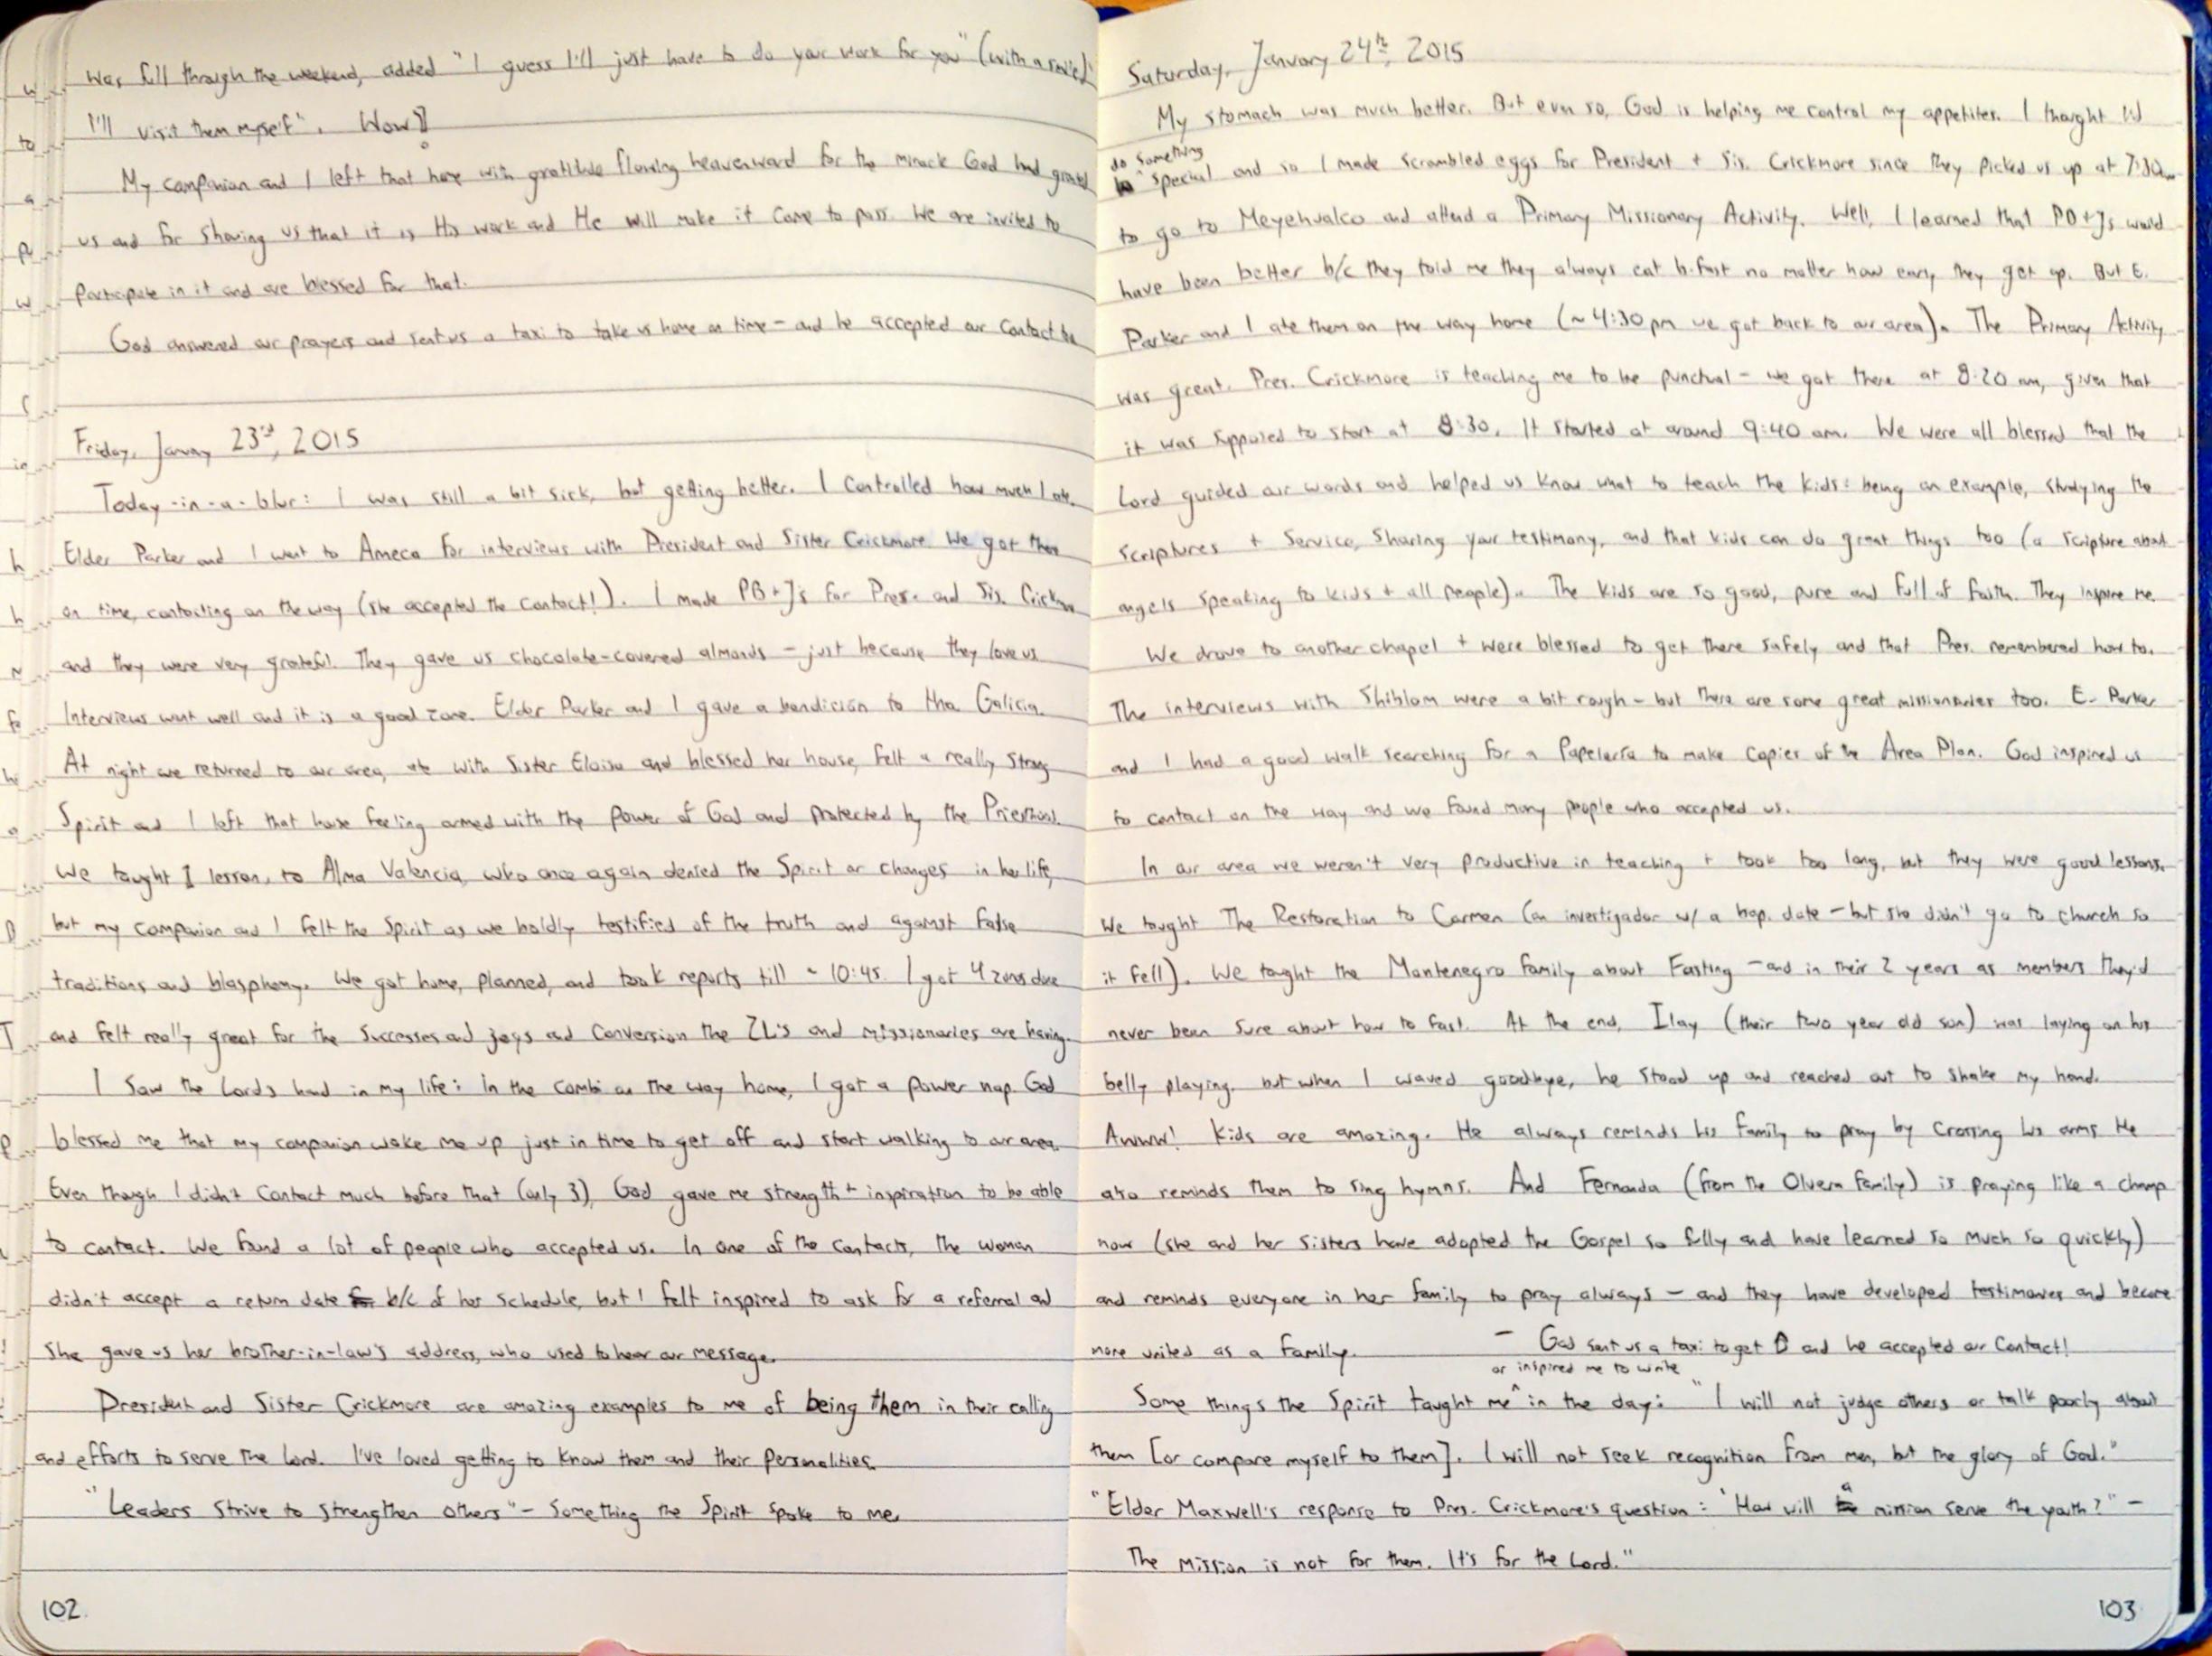 was full through the weekend, added "I guess I'll just have to do your work for you" (with a smile)
I'll visit them myself". Wow!
My companion and I left that home with gratitude flowing heavenward for the miracle God had granted
us and for showing us that it is His work and He will make it come to pass. We are invited to
participate in it and are blessed for that.
God answered our prayers and sent us a taxi to take us home on time - and he accepted our contact
Friday, January 23rd, 2015
Today-in-a-blur: I was still a bit sick, but getting better. I controlled how much I ate.
Elder Parker and I went to Ameca for interviews with President and Sister Crickmore. We got there
on time, contacting on the way (she accepted the contact!). I made PB+Js for Pres. and Sis. Crickmore
and they were very grateful. They gave us chocolate-covered almonds - just because they love us.
Interviews went well and it is a good zone. Elder Parker and I gave a bendición to Hna. Galicia.
At night we returned to our area, ate with Sister Eloisa and blessed her house, felt a really strong
Spirit and I left that house feeling armed with the power of God and protected by the Priesthood.
We taught 1 lesson, to Alma Valencia, who once again denied the Spirit or changes in her life,
but my companion and I felt the Spirit as we boldly testified of the truth and against false
traditions and blasphemy. We got home, planned, and took reports till ~ 10:45. I got 4 zones done
and felt really great for the successes and joys and conversion the ZL's and missionaries are having.
I saw the Lord's hand in my life: in the combi on the way home, I got a power nap. God
blessed me that my companion woke me up just in time to get off and start walking to our area.
Even though I didn't contact much before that (only 3), God gave me strength + inspiration to be able
to contact. We found a lot of people who accepted us. In one of the contacts, the woman
didn't accept a return date b/c of her schedule, but I felt inspired to ask for a referral and
she gave us her brother-in-law's address, who used to hear our message.
President and Sister Crickmore are amazing examples to me of being them in their calling
and efforts to serve the Lord. I've loved getting to know them and their personalities.
"Leaders strive to strengthen others" - Something the Spirit spoke to me.
102
Saturday, January 24th, 2015
My stomach was much better. But even so, God is helping me control my appetites. I thought I'd
do something special and so I made scrambled eggs for President + Sis. Crickmore since they picked us up at 7:30am
to go to Meyehualco and attend a Primary Missionary Activity. Well, I learned that PB+Js would
have been better b/c they told me they always eat b.fast no matter how early they get up. But E.
Parker and I ate them on the way home (~4:30pm we got back to our area). The Primary Activity
was great. Pres. Crickmore is teaching me to be punctual - we got there at 8:20 am, given that
it was supposed to start at 8:30. It started at around 9:40 am. We were all blessed that the
Lord guided our words and helped us know what to teach the kids: being an example, studying the
scriptures + service, sharing your testimony, and that kids can do great things too (a scripture about
angels speaking to kids + all people). The kids are so good, pure and full of faith. They inspire me.
We drove to another chapel + were blessed to get there safely and that Pres. remembered how to.
The interviews with Shiblom were a bit rough - but there are some great missionaries too. E. Parker
and I had a good walk searching for a Papelería to make copies of the Area Plan. God inspired us
to contact on the way and we found many people who accepted us.
In our area we weren't very productive in teaching + took too long, but they were good lessons.
We taught The Restoration to Carmen (an investigador w/ a bap. date - but she didn't go to church so
it fell). We taught the Montenegro family about Fasting - and in their 2 years as members they'd
never been sure about how to fast. At the end, Ilay (their two year old son) was laying on his
belly playing, but when I waved goodbye, he stood up and reached out to shake my hand.
Awww! Kids are amazing. He always reminds his family to pray by crossing his arms. He
also reminds them to sing hymns. And Fernanda (from the Olvera family) is praying like a champ
now (she and her sisters have adopted the Gospel so fully and have learned so much so quickly)
and reminds everyone in her family to pray always - and they have developed testimonies and become
more united as a family. - God sent us a taxi to get and he accepted our contact!
or inspired me to write
Some things the Spirit taught me^ in the day: "I will not judge others or talk poorly about
them [or compare myself to them]. I will not seek recognition from men, but the glory of God."
"Elder Maxwell's response to Pres. Crickmore's question: 'How will a mission serve the youth?" -
The mission is not for them. It's for the Lord."
103